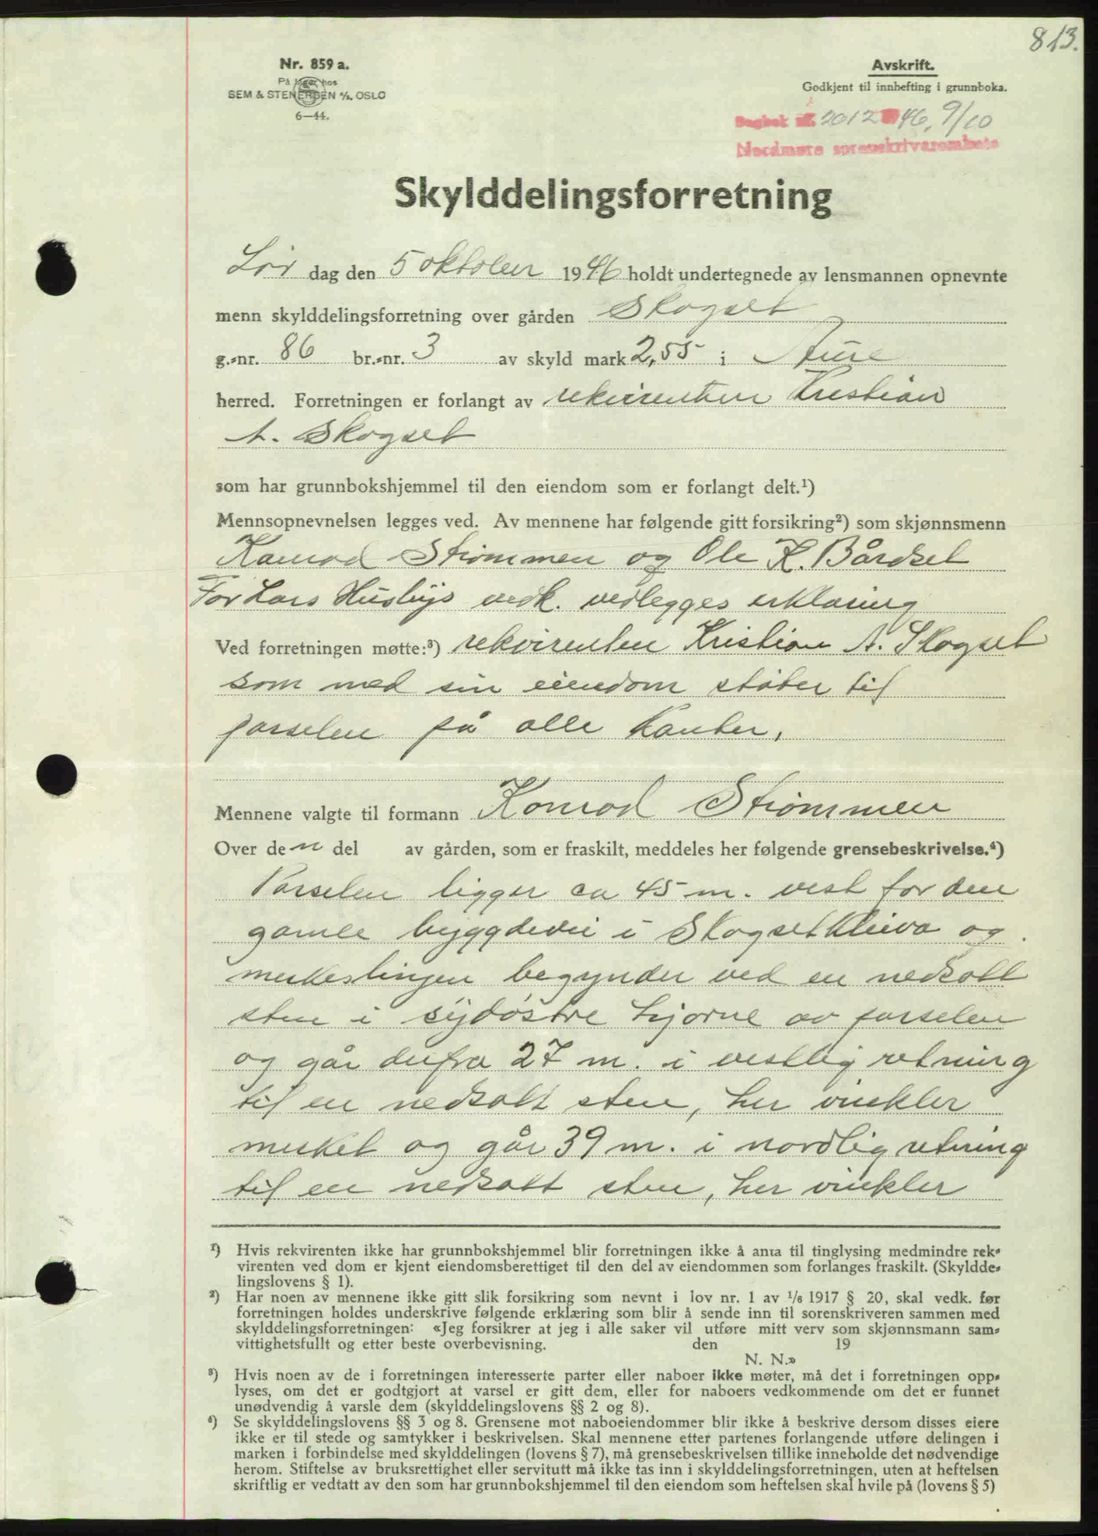 813.
Nr. 859 a.
På lager hos
SEM & STENERSEN A/S, OSLO
6—44.
Avskrift.
Godkjent til innhefting i grunnboka.
Dagbok nr. 2012 46, 9/10
Nordmøre sorenskriverembete
Skylddelingsforretning
Lør dag den 5 oktober 1946 holdt undertegnede av lensmannen opnevnte
menn skylddelingsforretning over gården Skogset
g.-nr. 86 br.-nr. 3 av skyld mark 2,55 i Aure
herred. Forretningen er forlangt av rekvirenten Kristian
A. Skogset
som har grunnbokshjemmel til den eiendom som er forlangt delt.¹)
Mennsopnevnelsen legges ved. Av mennene har følgende gitt forsikring²) som skjønnsmenn
Konrad Strømmen og Ole K. Bårdset
For Lars Husbys vedk. vedlegges erklæring
Ved forretningen møtte:³) rekvirenten Kristian A. Skogset
som med sin eiendom støter til
parselen på alle kanter.
Mennene valgte til formann Konrad Strømmen
Over den del av gården, som er fraskilt, meddeles her følgende grensebeskrivelse.⁴)
Parselen ligger ca 45 m. vest for den
gamle byggdevei i Skogsetkleiva og
merkeslingen begynder ved en nedsatt
sten i sydøstre hjørne av parselen
og går derfra 27 m. i vestlig retning
til en nedsatt sten, her vinkler
merket og går 39 m. i nordlig retning
til en nedsatt sten, her vinkler
¹) Hvis rekvirenten ikke har grunnbokshjemmel blir forretningen ikke å anta til tinglysing medmindre rek-
virenten ved dom er kjent eiendomsberettiget til den del av eiendommen som forlanges fraskilt. (Skyldde-
lingslovens § 1).
²) Har noen av mennene ikke gitt slik forsikring som nevnt i lov nr. 1 av 1/6 1917 § 20, skal vedk. før
forretningen holdes underskrive følgende erklæring som blir å sende inn til sorenskriveren sammen med
skylddelingsforretningen: «Jeg forsikrer at jeg i alle saker vil utføre mitt verv som skjønnsmann sam-
vittighetsfullt og etter beste overbevisning. den 19
N. N.»
³) Hvis noen av de i forretningen interesserte parter eller naboer ikke møter, må det i forretningen opp-
lyses, om det er godtgjort at varsel er gitt dem, eller for naboers vedkommende om det er funnet
unødvendig å varsle dem (skylddelingslovens §§ 2 og 8).
⁴) Se skylddelingslovens §§ 3 og 8. Grensene mot naboeiendommer blir ikke å beskrive dersom disses eiere
ikke er til stede og samtykker i beskrivelsen. Skal mennene etter partenes forlangende utføre delingen i
marken i forbindelse med skylddelingen (lovens § 7), må grensebeskrivelsen tillike inneholde det nødvendige
herom. Stiftelse av bruksrettighet eller servitutt må ikke tas inn i skylddelingsforretningen, uten at heftelsen
skriftlig er vedtatt av den som har grunnbokshjemmel til den eiendom som heftelsen skal hvile på (lovens § 5)